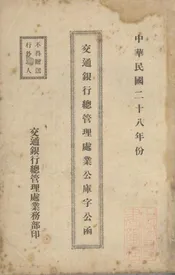 中華民國二十八年份
交通銀行總管理處業公庫字公函
不再附法
行外人
交通銀行總管理處業務部印